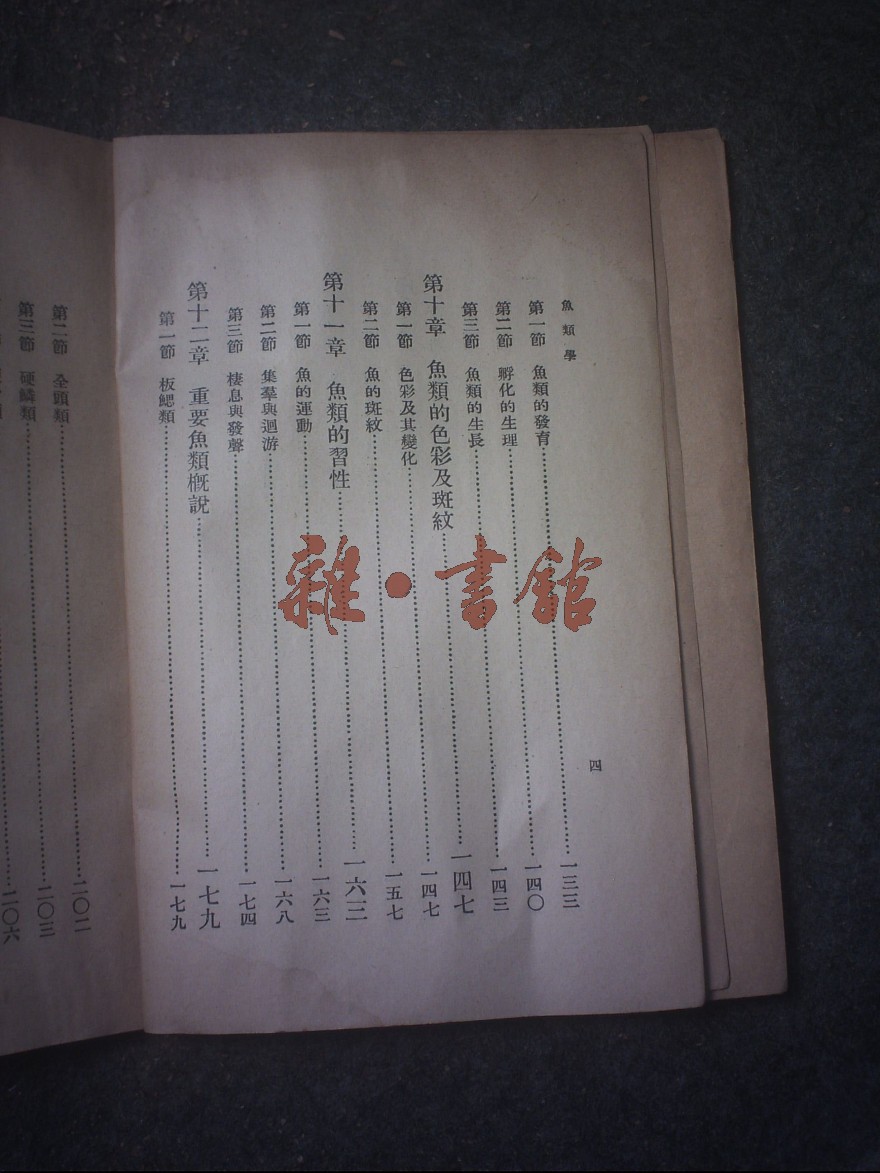 魚類學
第一節 魚類的發育……一三三
第二節 孵化的生理……一四〇
第三節 魚類的生長……一四三
第十章 魚類的色彩及斑紋……一四七
第一節 色彩及其變化……一四七
第二節 魚的斑紋……一五七
第十一章 魚類的習性……一六三
第一節 魚的運動……一六三
第二節 集羣與迴游……一六八
第三節 棲息與發聲……一七四
第十二章 重要魚類概說……一七九
第一節 板鰓類……一七九
四
第二節 全頭類……二〇二
第三節 硬鱗類……二〇三
二〇六
雜·書館